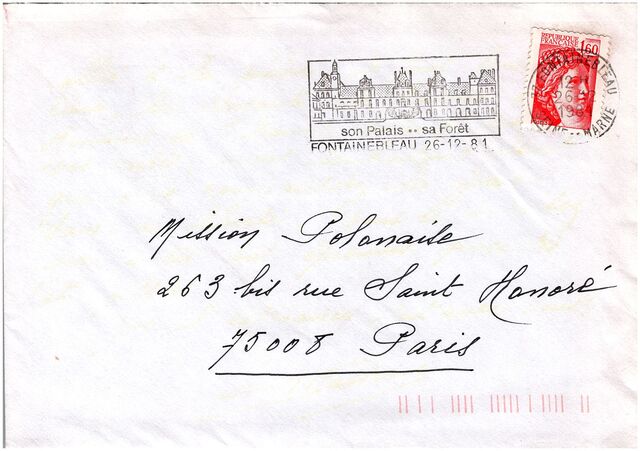 REPUBLIQUE
FRANCAISE
1,60
FONTAINEBLEAU
26
SEINE-ET-MARNE
son Palais •• sa Forêt
FONTAINEBLEAU 26-12-81
Mission Polonaise
263 bis rue Saint Honoré
75008 Paris